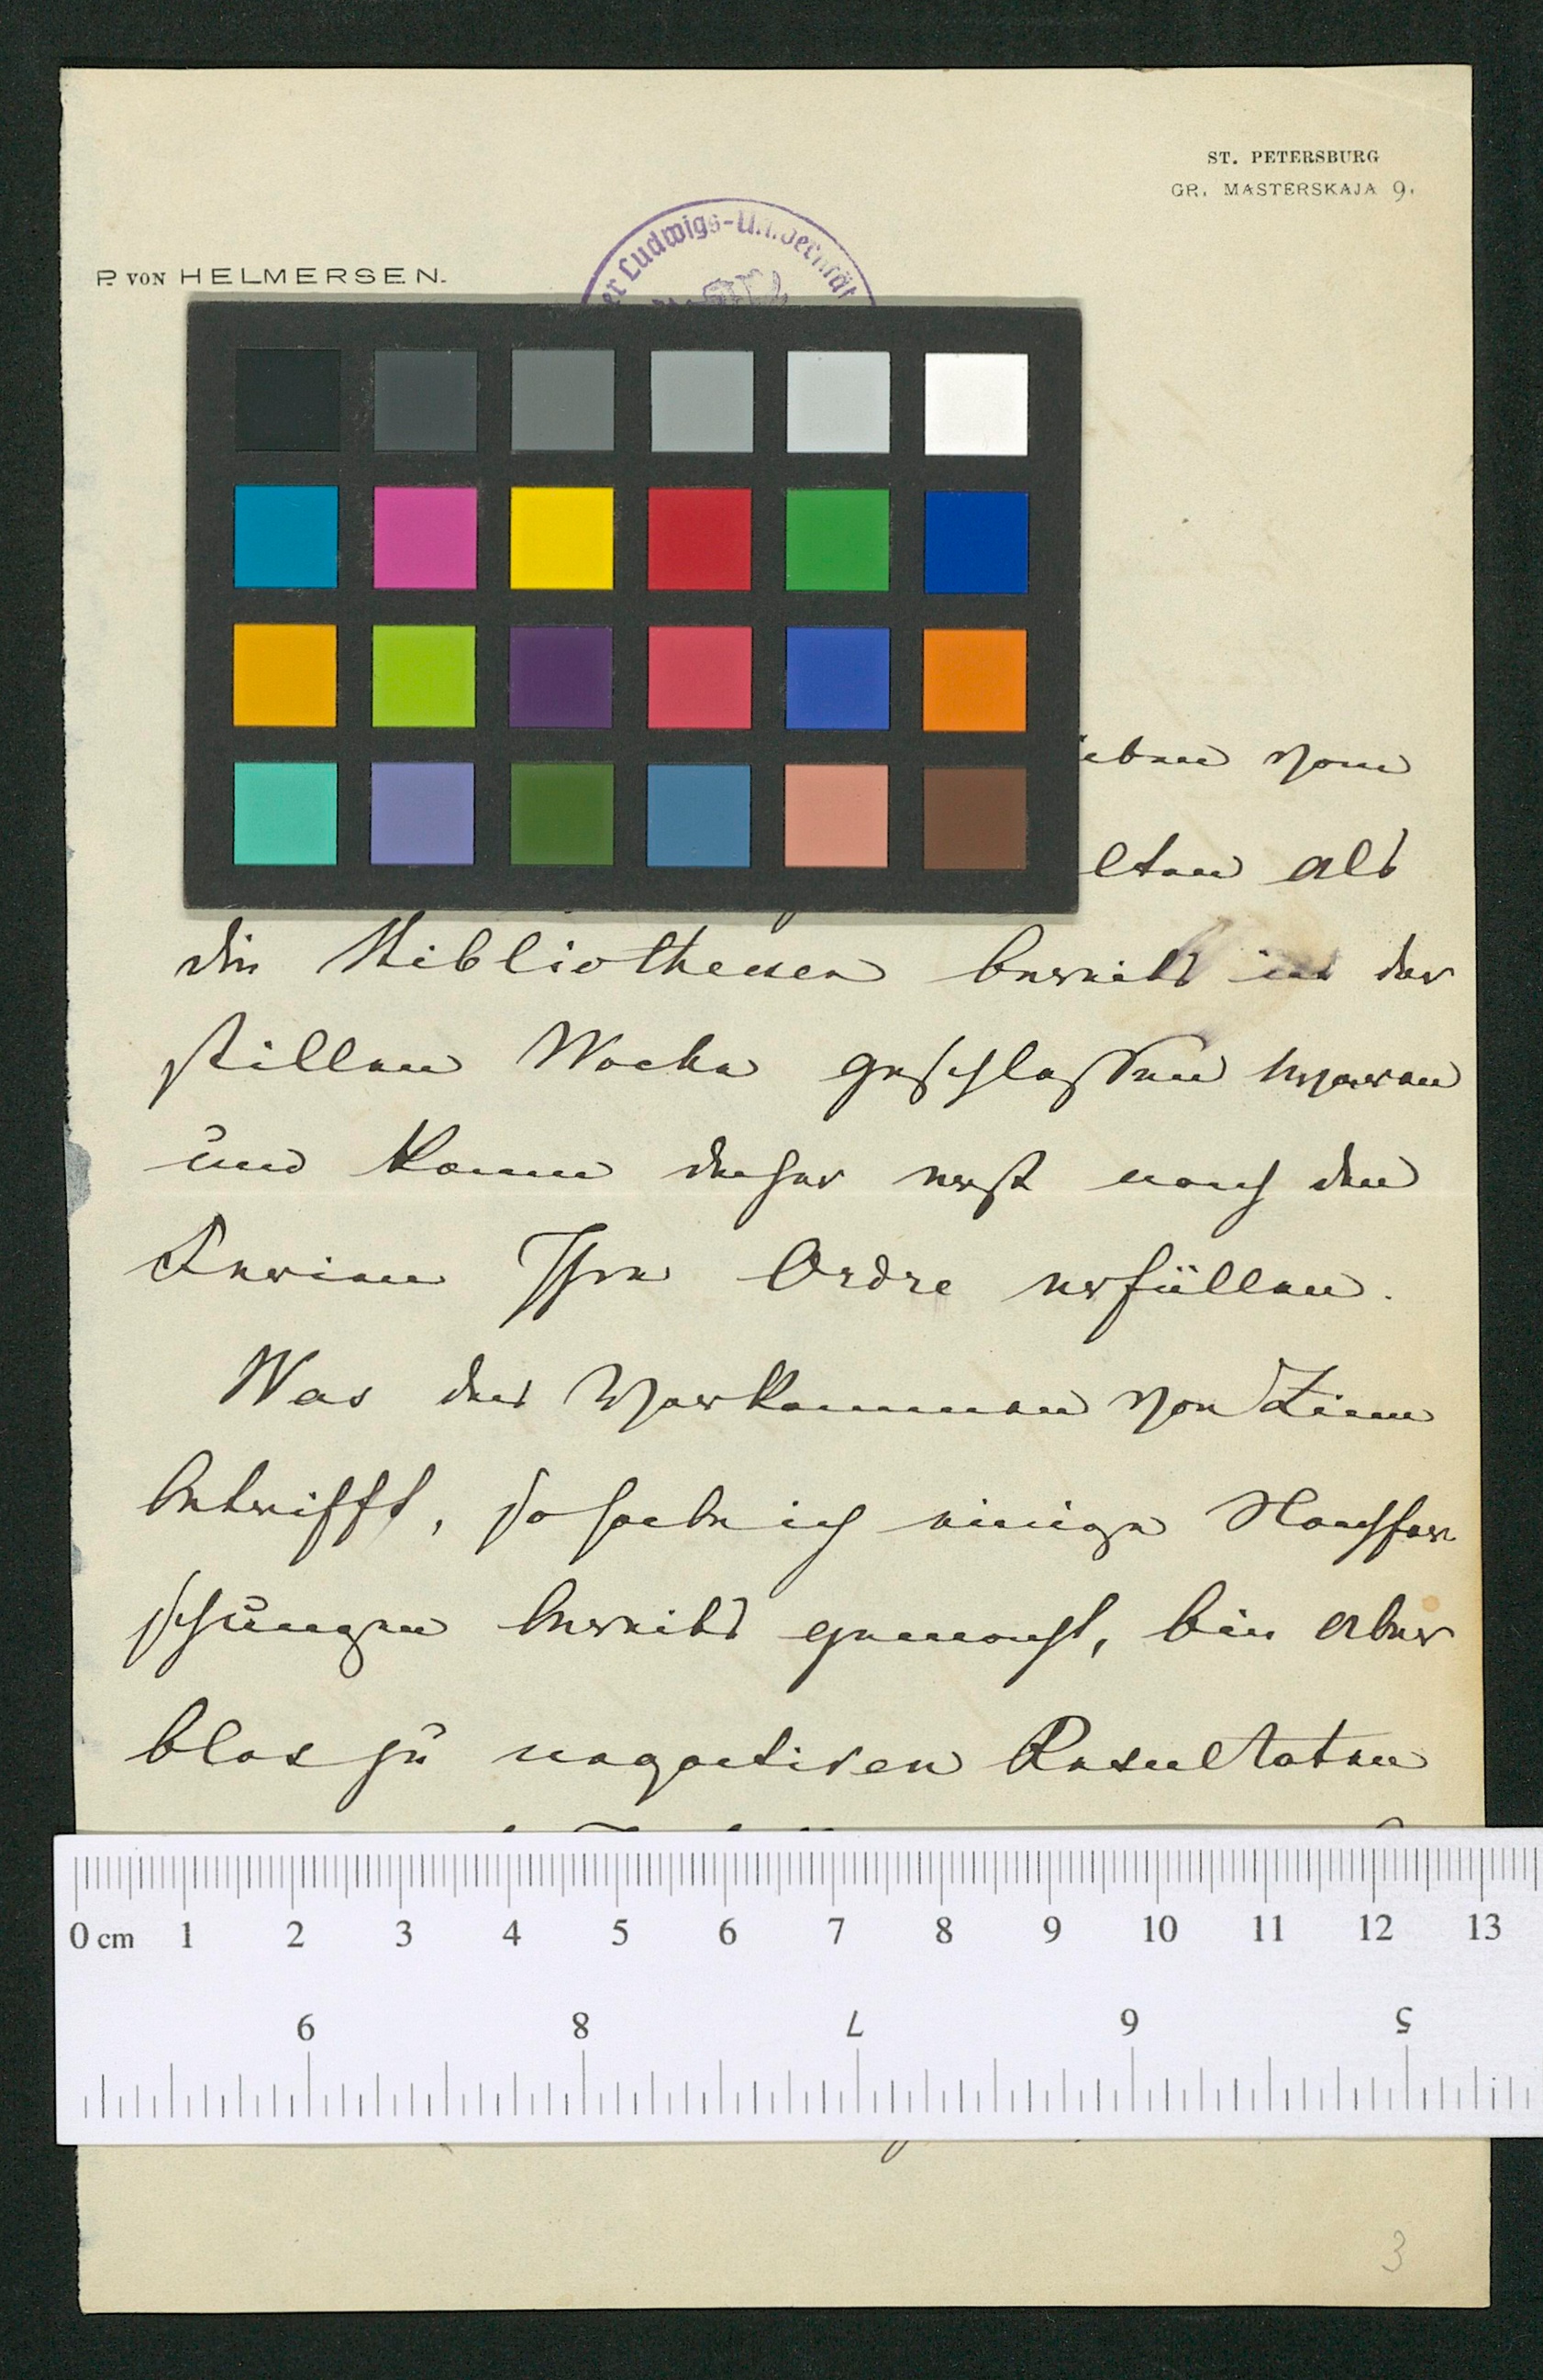 ST. PETERSBURG
GR. MASTERSKAJA 9.
er Ludwigs-Universität
P. VON HELMERSEN.
vom
als
die Bibliotheken bereits in der
stillen Woche geschlossen waren
und kann daher erst nach den
Ferien Ihre Ordre erfüllen.
Was das Vorkommen von Zinn
betrifft, so habe ich einige Nachfor
schungen bereits gemacht, bin aber
blos zu negativen Resultaten
0 cm 1 2 3 4 5 6 7 8 9 10 11 12 13
9 8 7 6 5
3